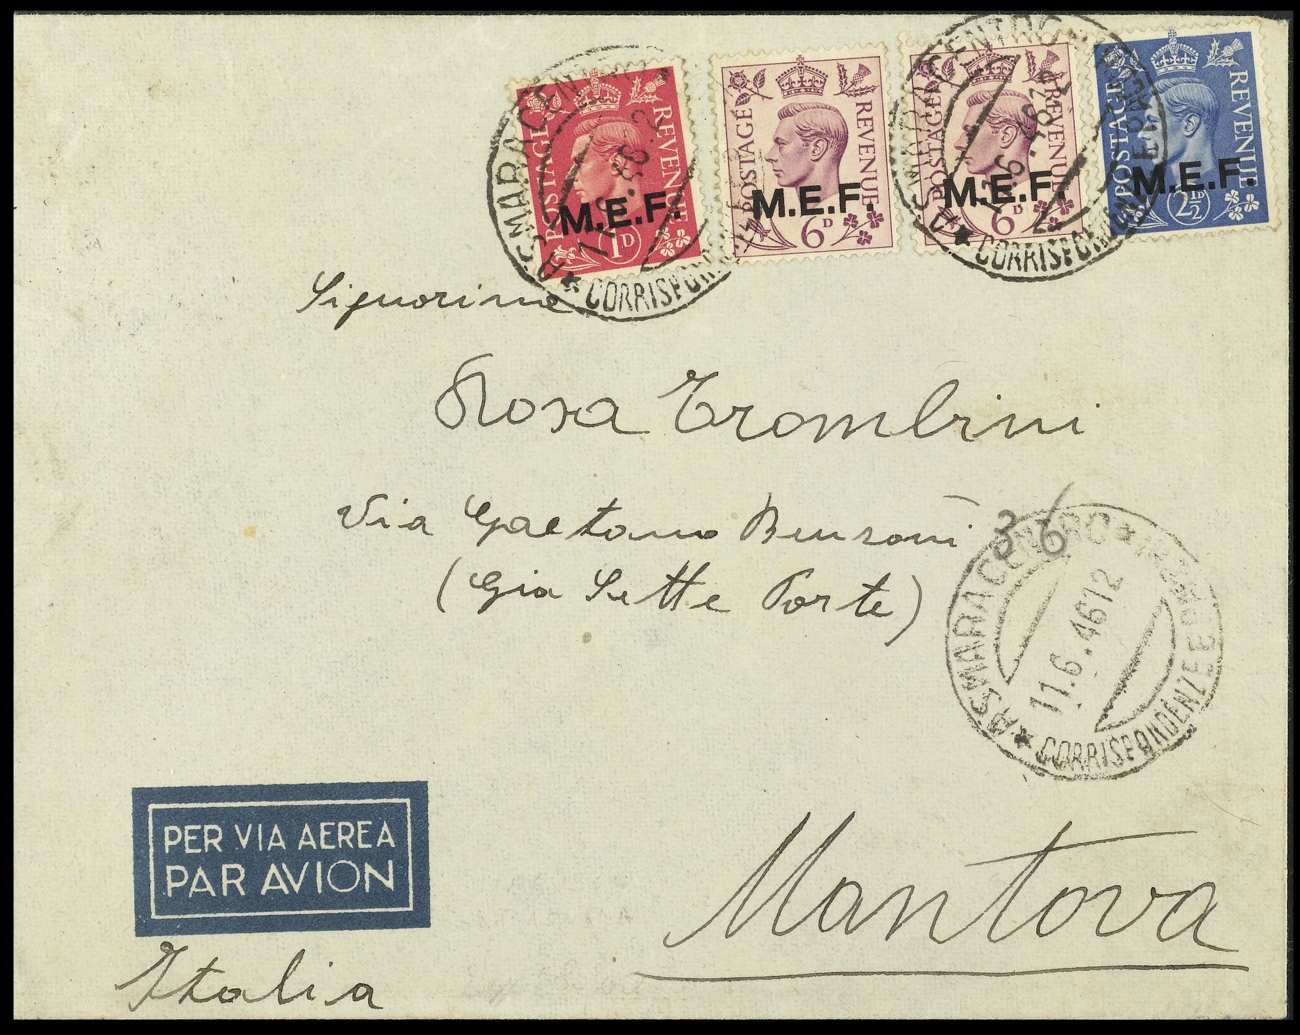 POSTAGE REVENUE M.E.F. 1D
POSTAGE REVENUE M.E.F. 6D
POSTAGE REVENUE M.E.F. 6D
POSTAGE REVENUE M.E.F. 2½
ASMARA CENTRO
CORRISPON
ASMARA CENTRO
CORRISPONDENZE E PACCHI
Signorina
Rosa Trombini
Via Gaetano Bensoni
(Già Sette Porte)
36
ASMARA CENTRO
11.6.46 12
CORRISPONDENZE E
PER VIA AEREA
PAR AVION
Mantova
Italia